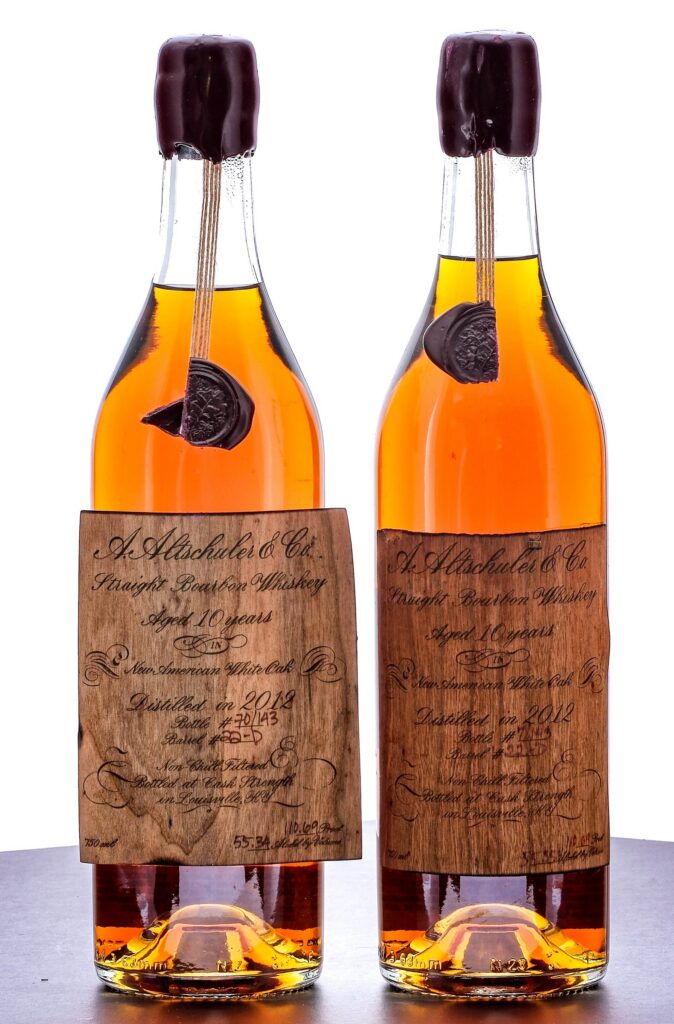 A. Altschuler & Co.
Straight Bourbon Whiskey
Aged 10 years
IN
New American White Oak
Distilled in 2012
Bottle # 70/143
Barrel # 22-D
Non Chill Filtered
Bottled at Cask Strength
in Louisville, KY
110.69 Proof
750 ml 55.34 Alcohol by Volume
A. Altschuler & Co.
Straight Bourbon Whiskey
Aged 10 years
IN
New American White Oak
Distilled in 2012
Bottle #
Barrel # 22-D
Non Chill Filtered
Bottled at Cask Strength
in Louisville, KY
Proof
750 ml Alcohol by Volume
63mm